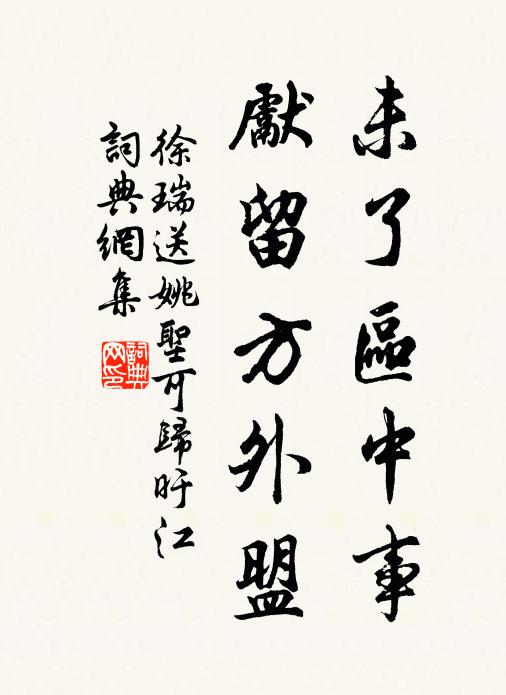 未了區中事
獻留方外盟
徐瑞送姚聖可歸旴江
詞典網集
詞典网印